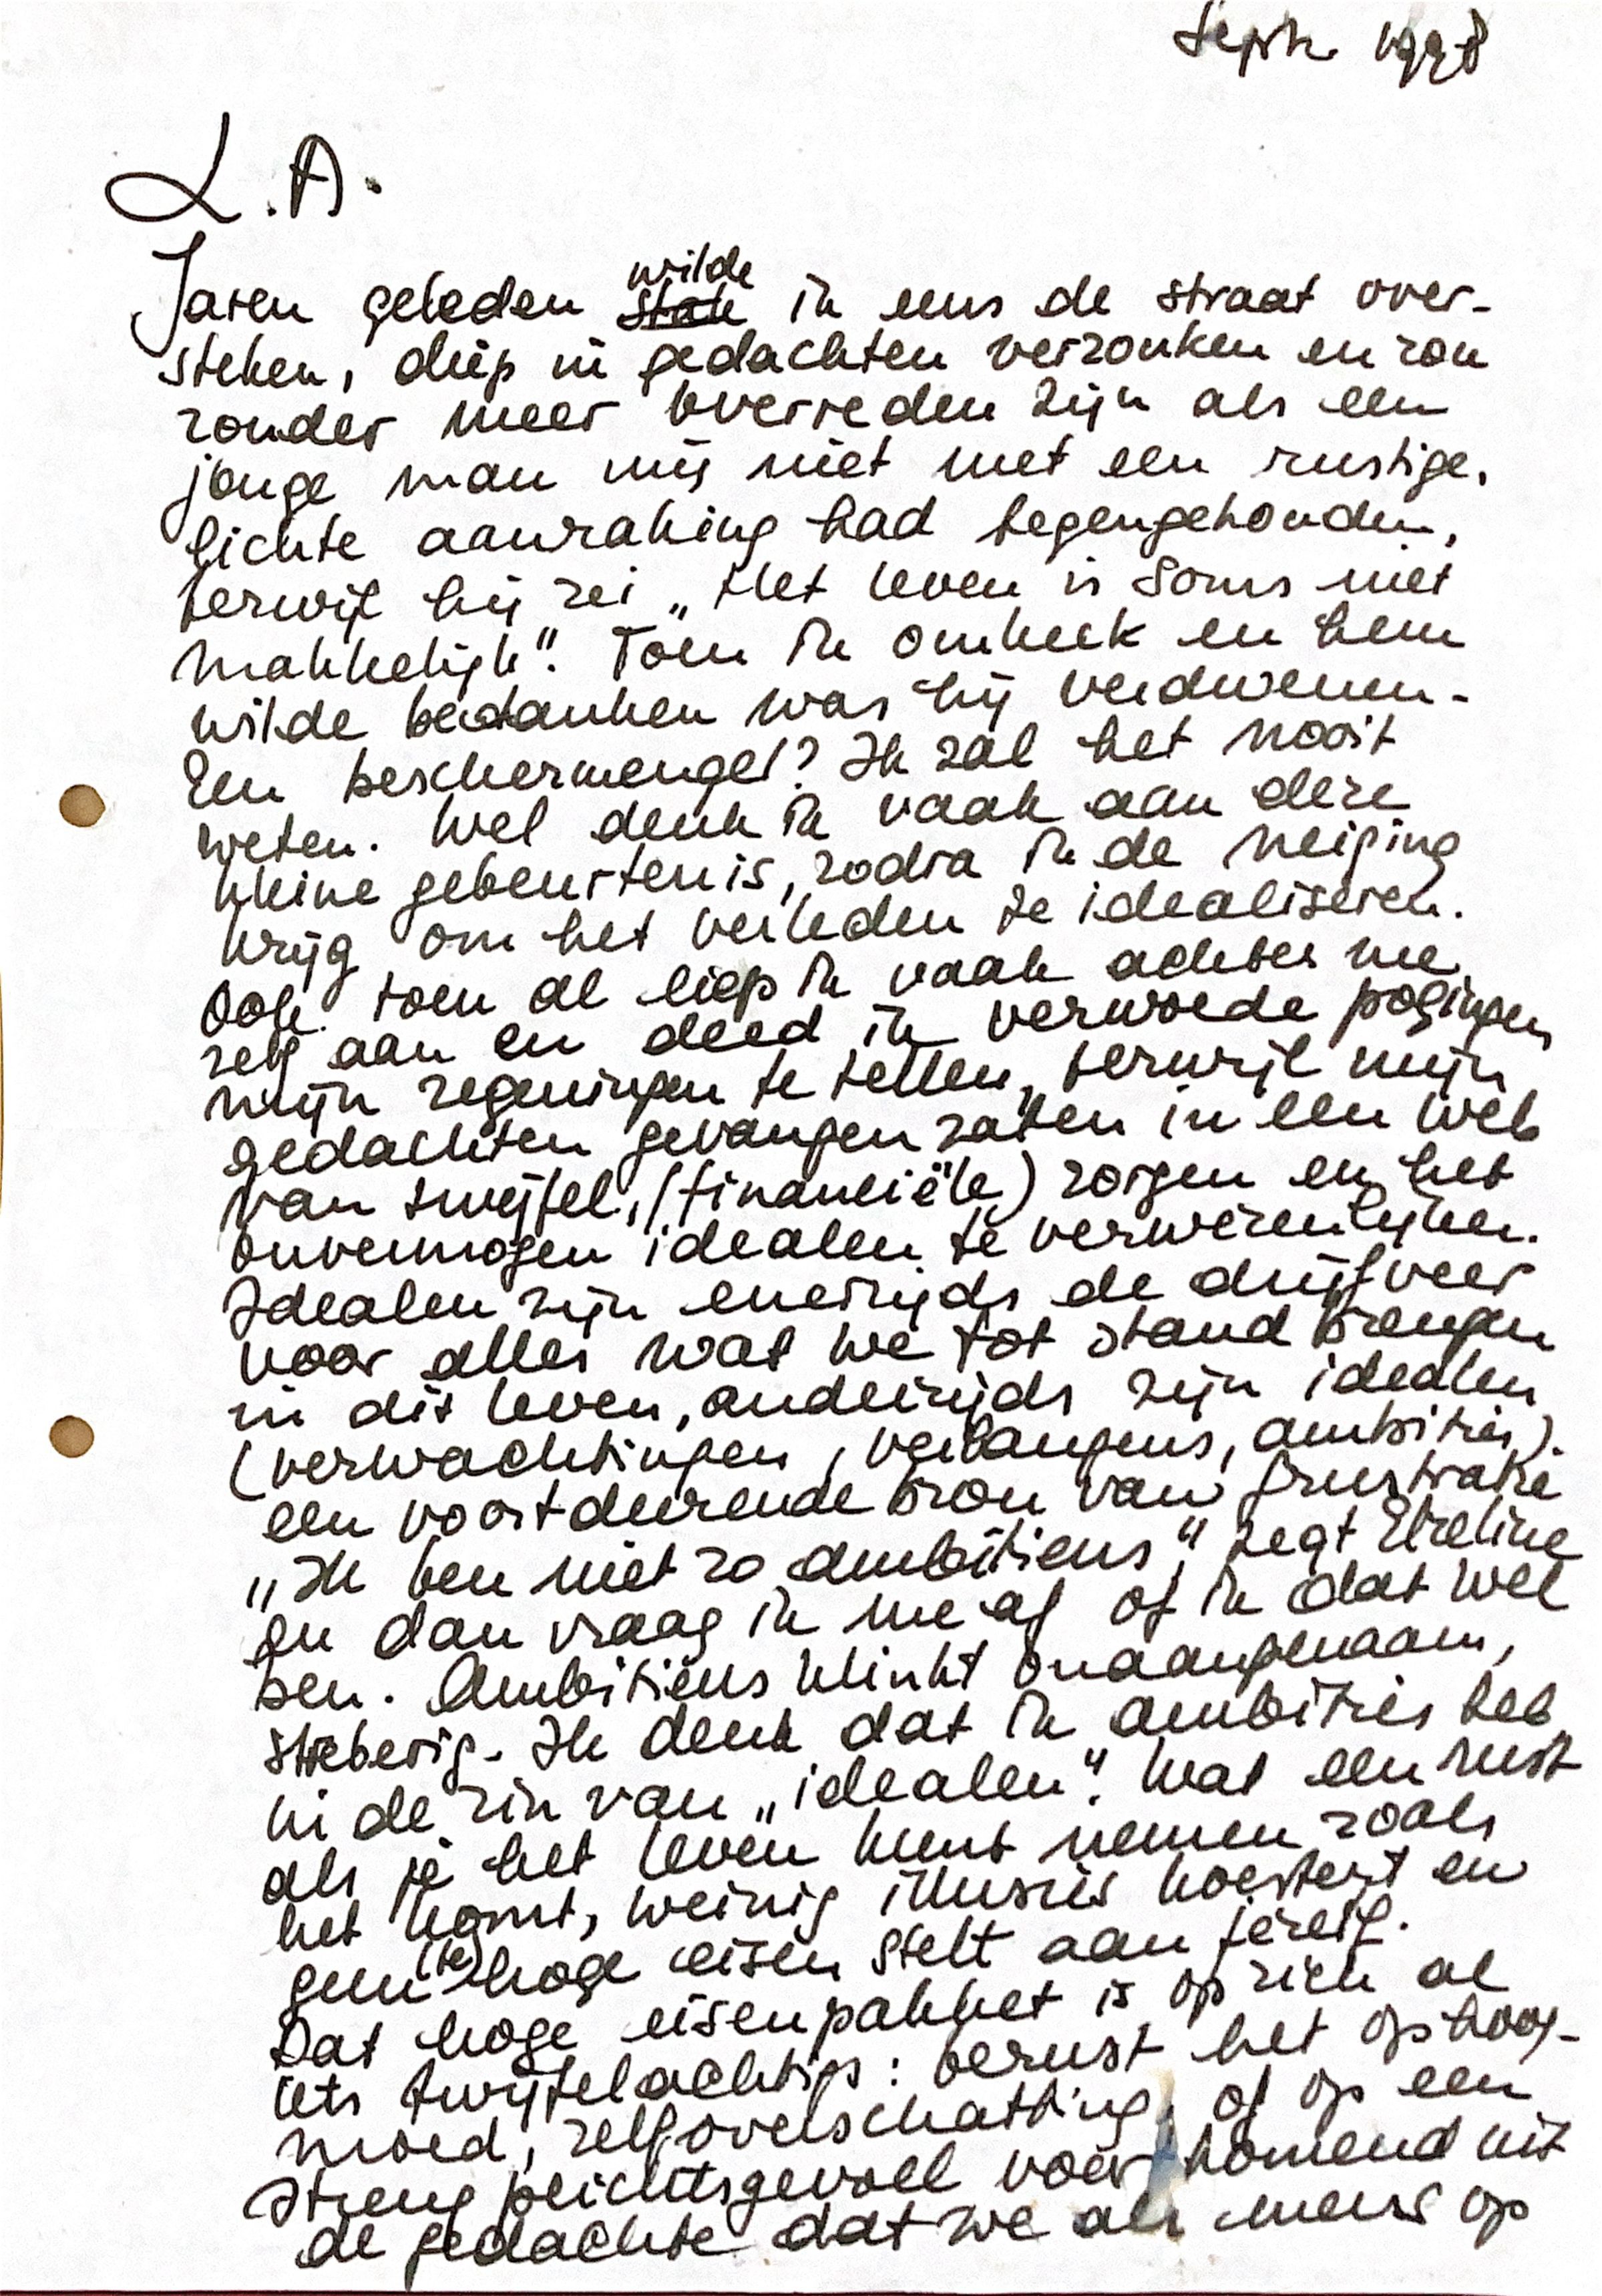 Sept. 1998
L.A.
Jaren geleden wilde ik eens de straat over-
steken, diep in gedachten verzonken en zou
zonder meer overreden zijn als een
jonge man mij niet met een rustige,
lichte aanraking had tegengehouden,
terwijl hij zei „Het leven is soms niet
makkelijk". Toen ik omkeek en hem
wilde bedanken was hij verdwenen.
Een beschermengel? Ik zal het nooit
weten. Wel denk ik vaak aan deze
kleine gebeurtenis, zodra ik de neiging
krijg om het verleden te idealiseren.
Ook toen al liep ik vaak achter me
zelf aan en deed ik verwoede pogingen
mijn zegeningen te tellen, terwijl mijn
gedachten gevangen zaten in een web
van twijfel, (financiële) zorgen en het
onvermogen idealen te verwezenlijken.
Idealen zijn enerzijds de drijfveer
voor alles wat we tot stand brengen
in dit leven, anderzijds zijn idealen
(verwachtingen, verlangens, ambities).
een voortdurende bron van frustratie
„Ik ben niet zo ambitieus" zegt
en dan vraag ik me af of ik dat wel
ben. Ambitieus klinkt onaangenaam,
streberig. Ik denk dat ik ambities heb
in de zin van „idealen". Wat een rust
als je het leven kunt nemen zoals
het komt, weinig illusies koestert en
geen (te) hoge eisen stelt aan jezelf.
Dat hoge eisenpakket is op zich al
iets twijfelachtigs: berust het op hoog-
moed, zelfoverschatting, of op een
streng plichtsgevoel voortkomend uit
de gedachte dat we als mens op